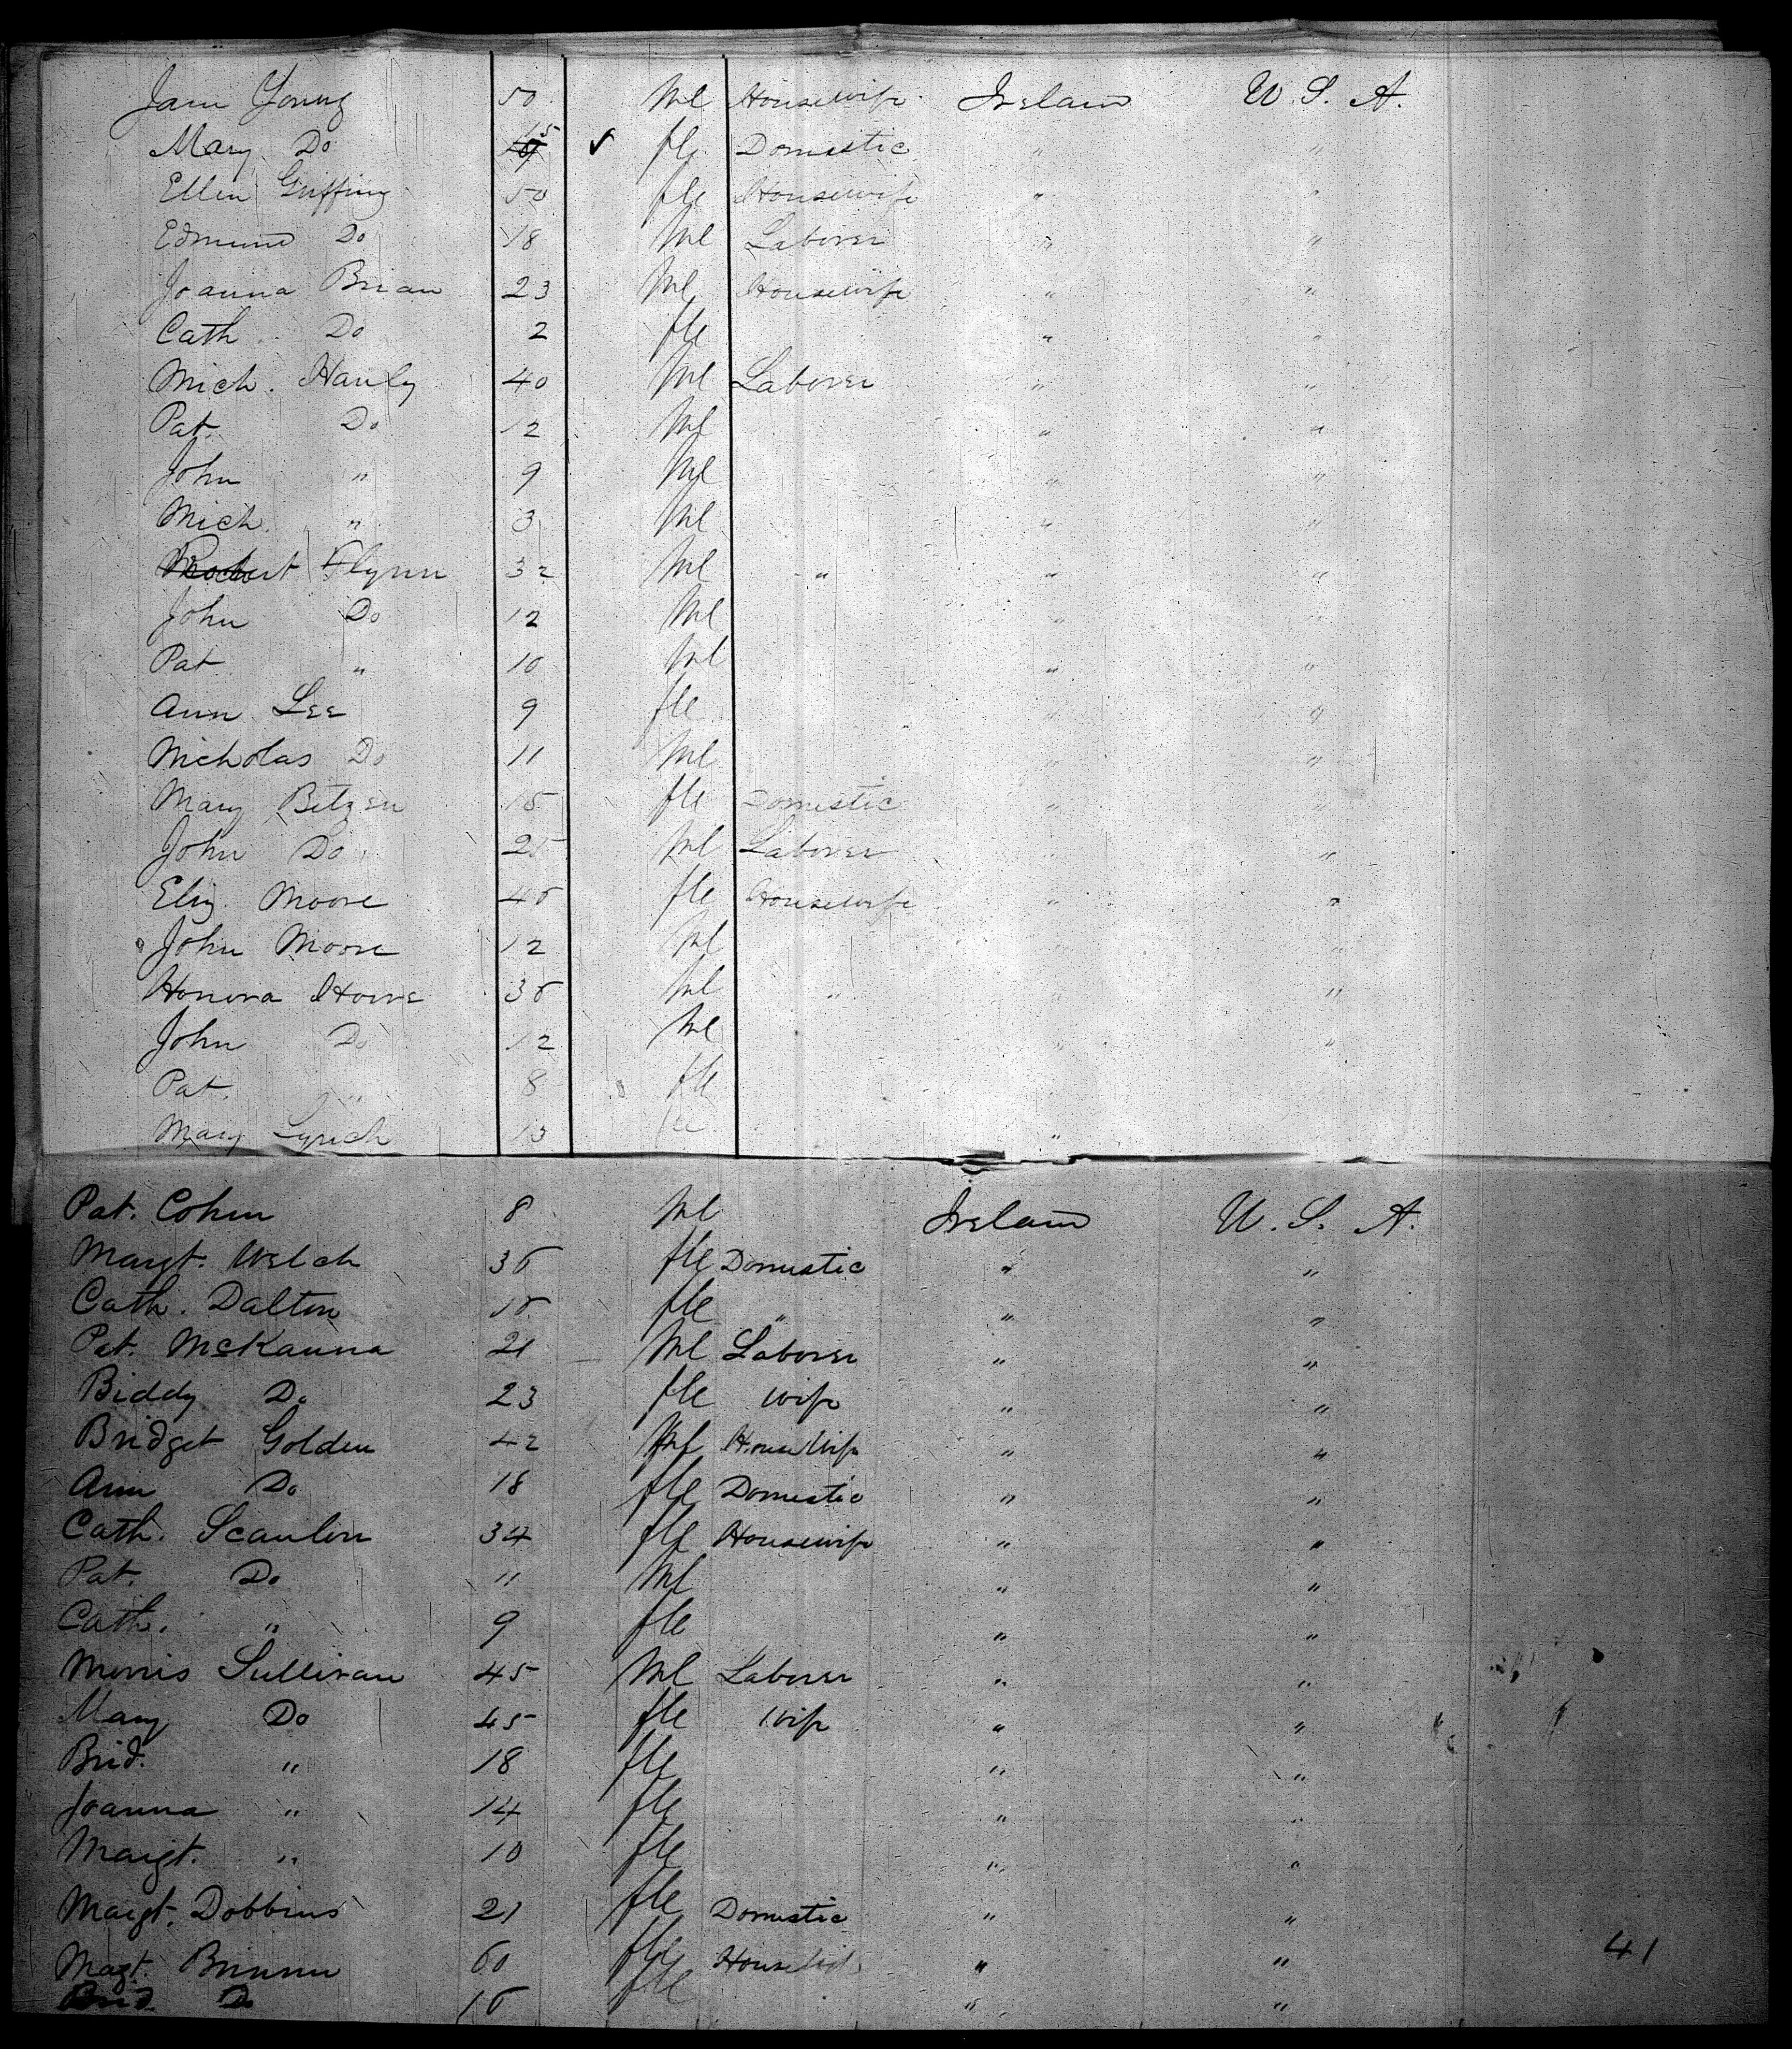 Jane Young 50 Ml Housewife Ireland U. S. A.
Mary Do 15 fle Domestic " "
Ellen Griffing 50 fle Housewife " "
Edmund Do 18 Ml Laborer " "
Joanna Brian 23 Ml Housewife " "
Cath Do 2 fle " "
Mich. Hanly 40 Ml Laborer " "
Pat. Do 12 Ml " "
John " 9 Ml " "
Mich. " 3 Ml " "
Flynn 32 Ml " " "
John Do 12 Ml " "
Pat " 10 Ml " "
Ann Lee 9 fle " "
Nicholas Do 11 Ml " "
Mary Betzen 18 fle Domestic " "
John Do 25 Ml Laborer " "
Eliz. Moore 45 fle Housewife " "
John Moore 12 Ml "
Honora Howe 35 Ml " " "
John Do 12 Ml " "
Pat. " 8 fle "
Mary Lynch 13 fle "
Pat. Cohen 8 Ml Ireland U. S. A.
Margt. Welch 35 fle Domestic " "
Cath. Dalton 18 fle " " "
Pat. McKanna 21 Ml Laborer " "
Biddy Do 23 fle Wife " "
Bridget Golden 42 House Wife " "
Ann Do 18 fle Domestic " "
Cath. Scanlon 34 fle Housewife " "
Pat. Do 11 Ml " "
Cath. " 9 fle " "
Morris Sullivan 45 Ml Laborer " "
Mary Do 45 fle Wife " "
Brid. " 18 fle " "
Joanna " 14 fle " "
Margt. " 10 fle " "
Margt. Dobbins 21 fle Domestic " "
Magt. Brinnn 60 fle " " 41
Brid Do 15 fle " "